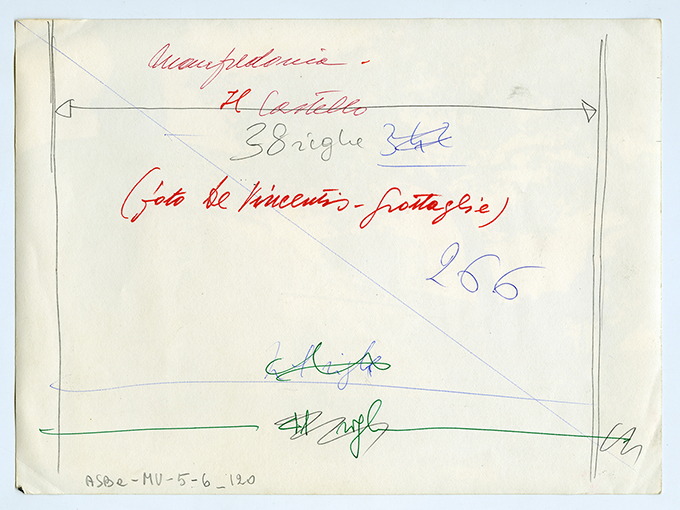 Manfredonia -
Il Castello
38 righe
(foto De Vincentis - Grottaglie)
266
righe
righ
ASBa-MV-5-6_120